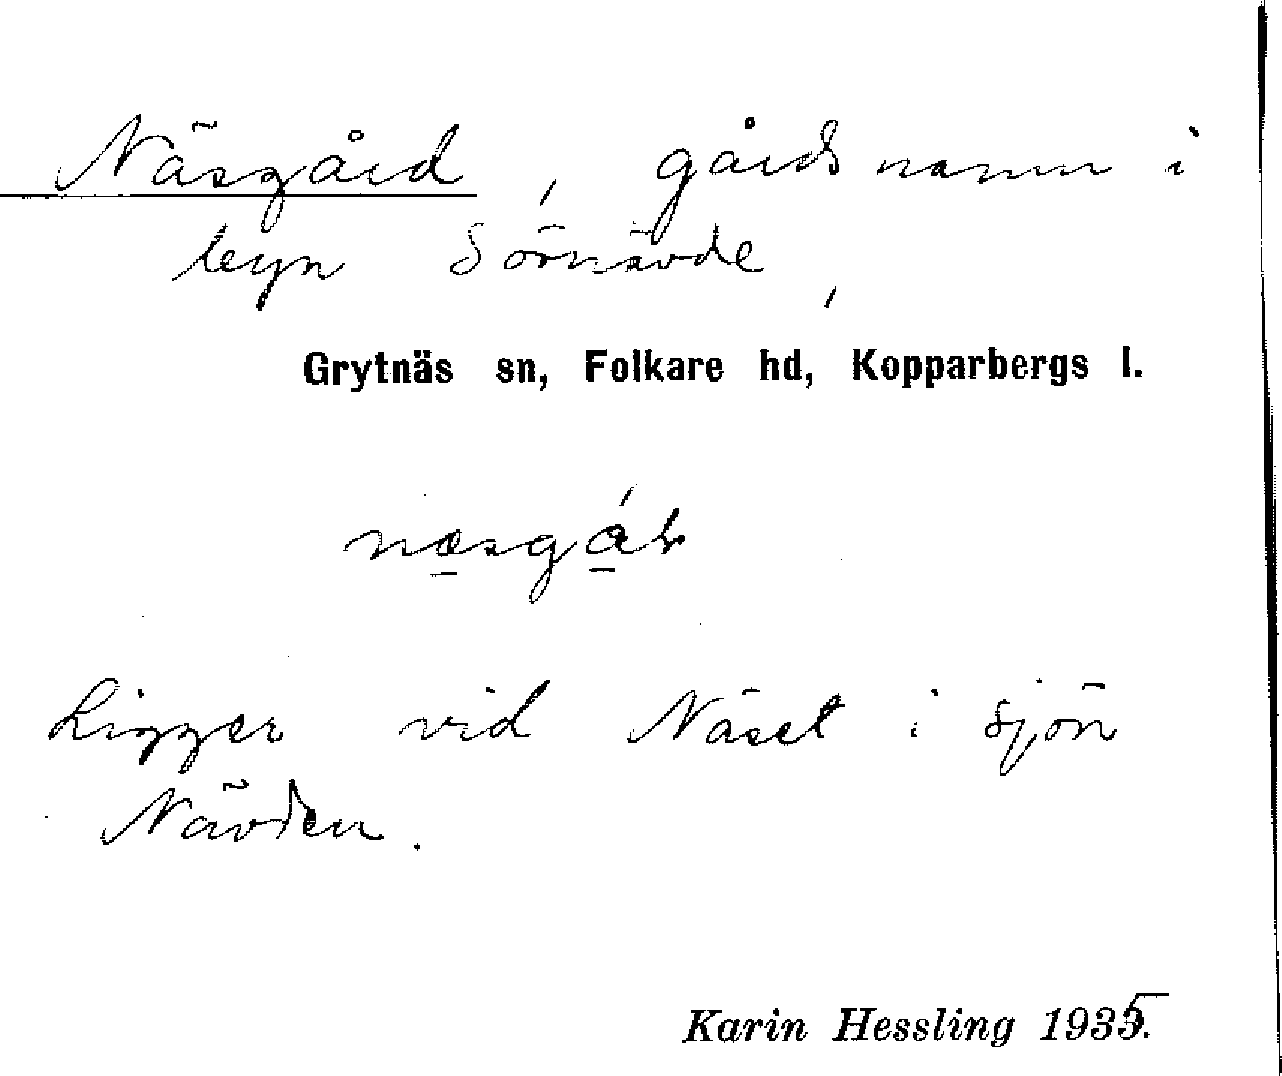 Näsgård, gårdsnamn i
byn Sörnävde,
Grytnäs sn, Folkare hd, Kopparbergs l.
Ligger vid Näset i sjön
Nävden.
Karin Hessling 1935.